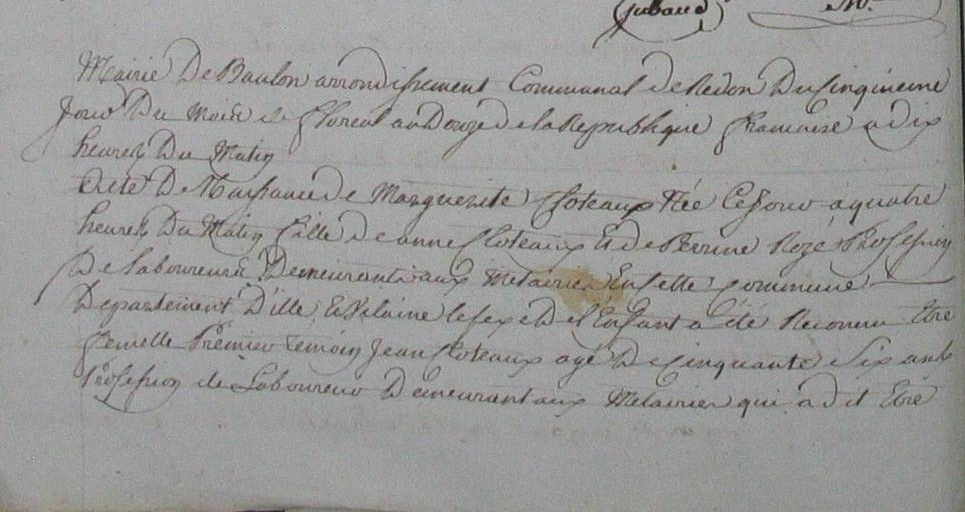 jubaud
Mairie De Baulon arrondissement Communal de Redon Du Cinquieme
Jour Du Mois de floreal an Douze de la Republique francaise a dix
heures Du Matin
Acte De Naissance de Marguerite Coteaux Née Ce Jour a quatre
heures Du Matin fille de anne Coteaux Et de Perrine Rozé Profession
De Laboureurs Demeurants aux Metairies En cette commune
Departement D'ille Et Vilaine le sexe De l'Enfant a été Reconnu Etre
femelle Premier temoin Jean Coteaux agé De Cinquante Six ans
Profession de Laboureur Demeurant aux Metairies qui a dit Etre